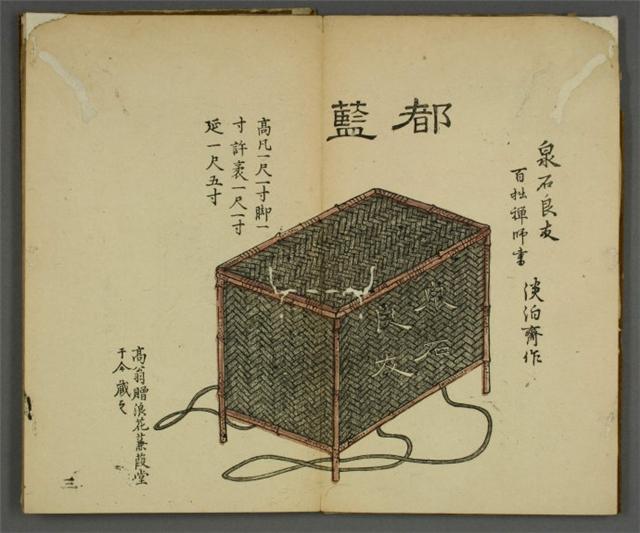 泉石良友
百拙禪師書
淡泊齋作
都藍
泉石
良友
高凡一尺一寸脚一
寸許袤一尺一寸
延一尺五寸
高翁贈浪花蒹葭堂
于今藏之
三